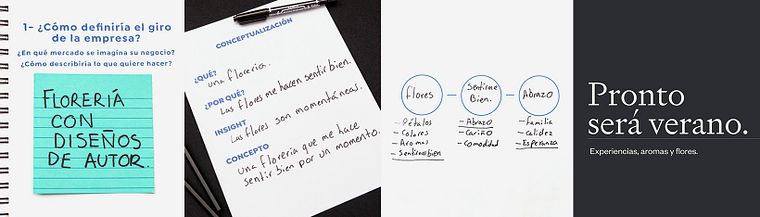 1- ¿Cómo definiría el giro
de la empresa?
¿En qué mercado se imagina su negocio?
¿Cómo describiría lo que quiere hacer?
FLORERIÁ
CON
DISEÑOS
DE AUTOR.
CONCEPTUALIZACIÓN
¿QUÉ?
una florería.
¿POR QUÉ?
Las flores me hacen sentir bien.
INSIGHT
Las flores son momentáneas.
CONCEPTO
una florería que me hace
sentir bien por un momento.
Flores
- Pétalos
- Colores
- Aromas
- Sentirse bien
Sentirme
Bien.
- Abrazo
- Cariño
- Comodidad
Abrazo
- Familia
- calidez
- Esperanza
Pronto
será verano.
Experiencias, aromas y flores.